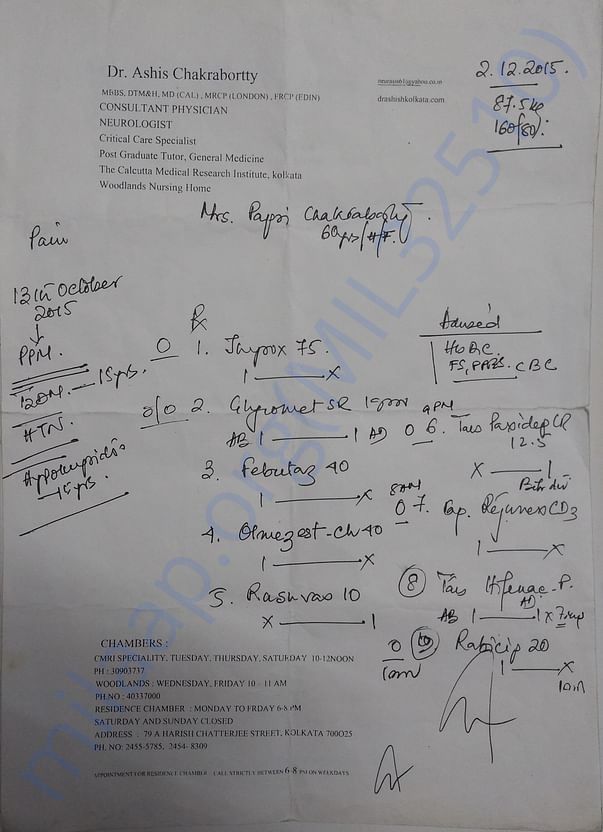 Dr. Ashis Chakrabortty
MBBS, DTM&H, MD (CAL), MRCP (LONDON), FRCP (EDIN)
CONSULTANT PHYSICIAN
NEUROLOGIST
Critical Care Specialist
Post Graduate Tutor, General Medicine
The Calcutta Medical Research Institute, kolkata
Woodlands Nursing Home
drashishkolkata.com
2.12.2015.
87.5 kg
160/80
Mrs. Papri Chakraborty.
60yrs/H/F.
Pain
13th October
2015
PPM.
T2DM. — 15yrs.
HTN.
— 15yrs.
Advised
FS, PPBS, CBC
Rx
1. Thyrox 75.
1 — X
2. Glycomet SR 1gm
AB 1 — 1 AD
3. Febutaz 40
1 — X
4. Olmezest-CH 40
1 — X
5. Rosuvas 10
X — 1
9PM
6. Tab Paxidep CR
12.5
X — 1
8AM
7. Cap. Rejunex CD3
1 — X
8 Tab Hifenac-P.
AB 1 — 1 AD X 7
Rabicip 20
1 — X
CHAMBERS :
CMRI SPECIALITY, TUESDAY, THURSDAY, SATURDAY 10-12NOON
PH : 30903737
WOODLANDS : WEDNESDAY, FRIDAY 10 - 11 AM
PH.NO : 40337000
RESIDENCE CHAMBER : MONDAY TO FRDAY 6-8 PM
SATURDAY AND SUNDAY CLOSED
ADDRESS : 79 A HARISH CHATTERJEE STREET, KOLKATA 700025
PH. NO: 2455-5785, 2454-8309
APPOINTMENT FOR RESIDENCE CHAMBER CALL STRICTLY BETWEEN 6-8 PM ON WEEKDAYS
milaap.org(MIL32510)